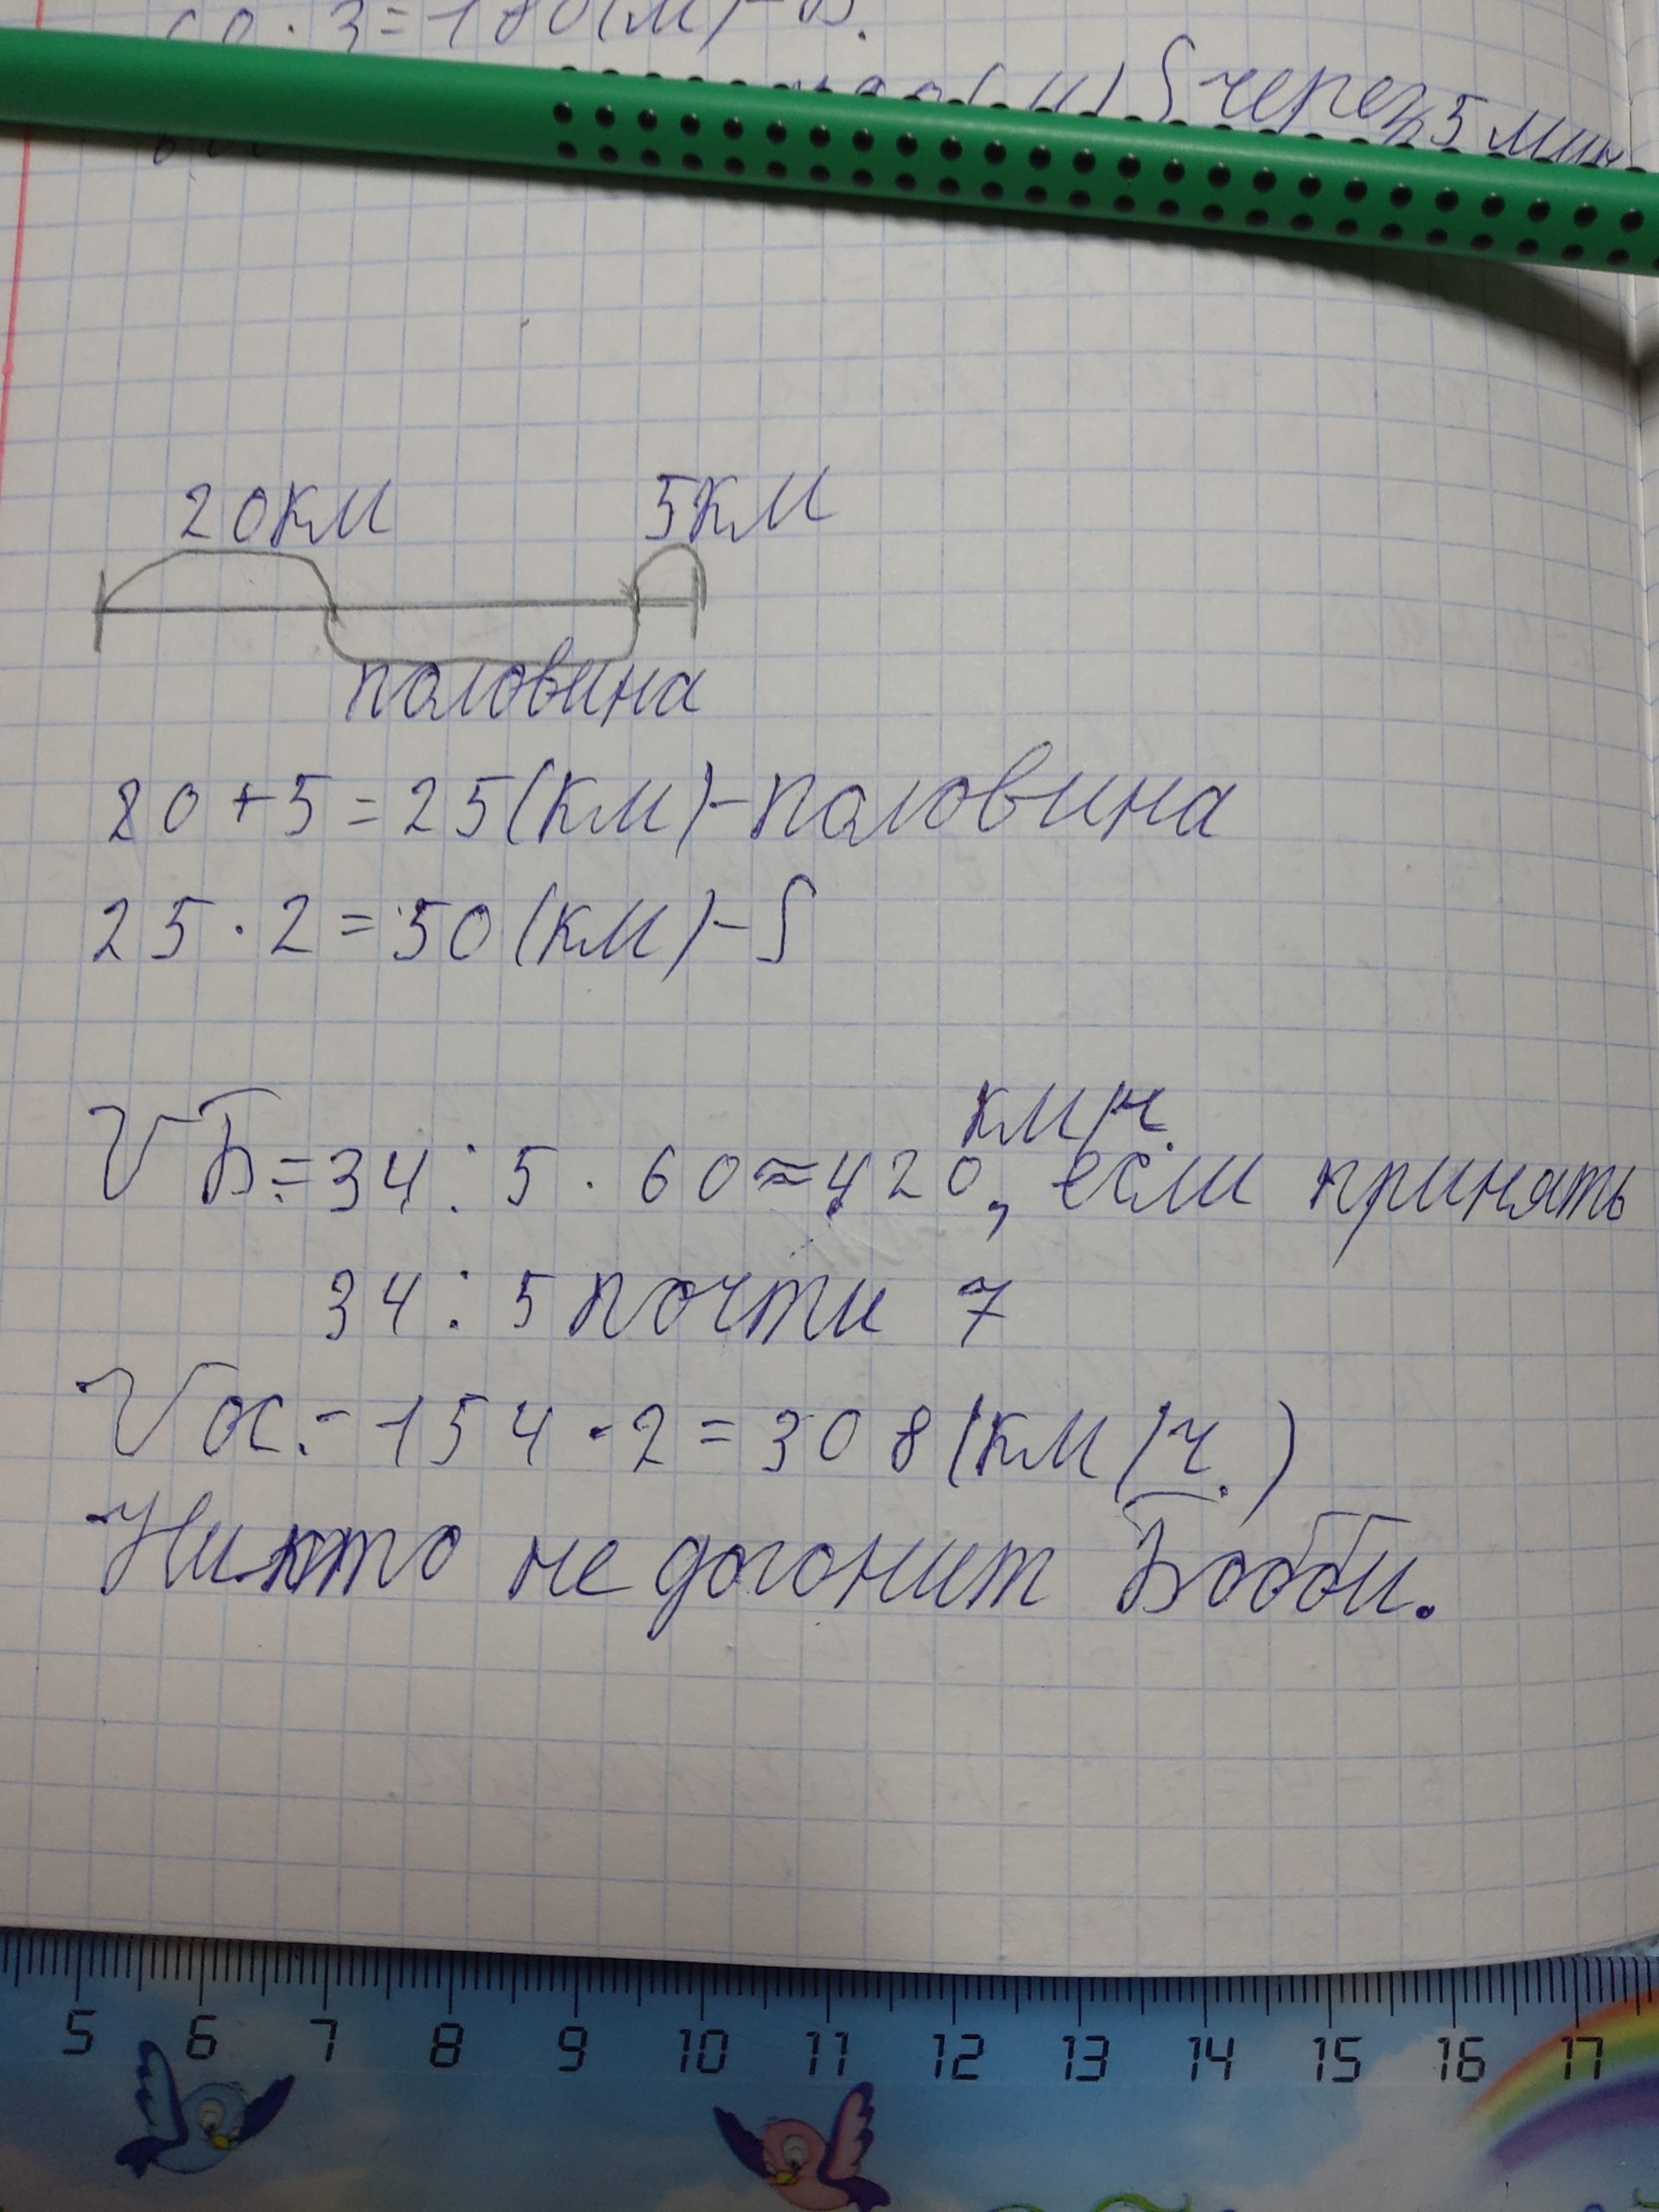 60 · 3 = 180 (м) - В.
(м) S через 5 мин
20 км 5 км
половина
20 + 5 = 25 (км) - половина
25 · 2 = 50 (км) - S
км/ч.
VБ. = 34 : 5 · 60 ≈ 420, если принять
34 : 5 почти 7
Vос. = 154 · 2 = 308 (км/ч.)
Никто не догонит Бобби.
5 6 7 8 9 10 11 12 13 14 15 16 17